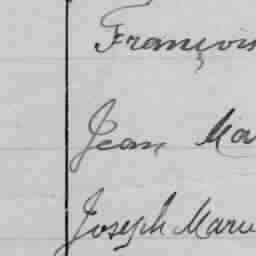 François
Jean Ma
Joseph Marie